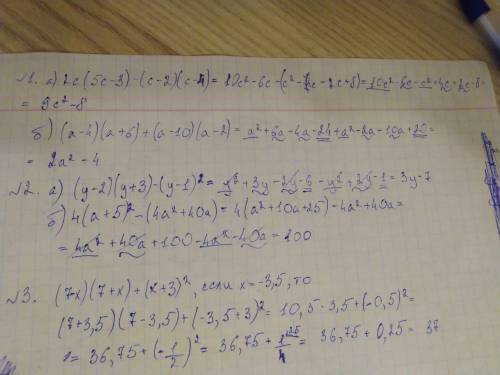 №1. а) 2c(5c-3)-(c-2)(c-4)= 10c²-6c-(c²-4c-2c+8)=10c²-6c-c²+4c+2c-8=
= 9c²-8
б) (a-4)(a+6)+(a-10)(a-2)= a²+6a-4a-24+a²-2a-10a+20=
= 2a²-4
№2. а) (y-2)(y+3)-(y-1)²= y²+3y-2y-6-y²+2y-1= 3y-7
б) 4(a+5)²-(4a²+40a)= 4(a²+10a+25)-4a²+40a=
= 4a²+40a+100-4a²-40a=100
№3. (7-x)(7+x)+(x+3)², если x=-3,5, то
(7+3,5)(7-3,5)+(-3,5+3)²= 10,5·3,5+(-0,5)²=
= 36,75+(-1/2)²= 36,75+1/4= 36,75+0,25= 37